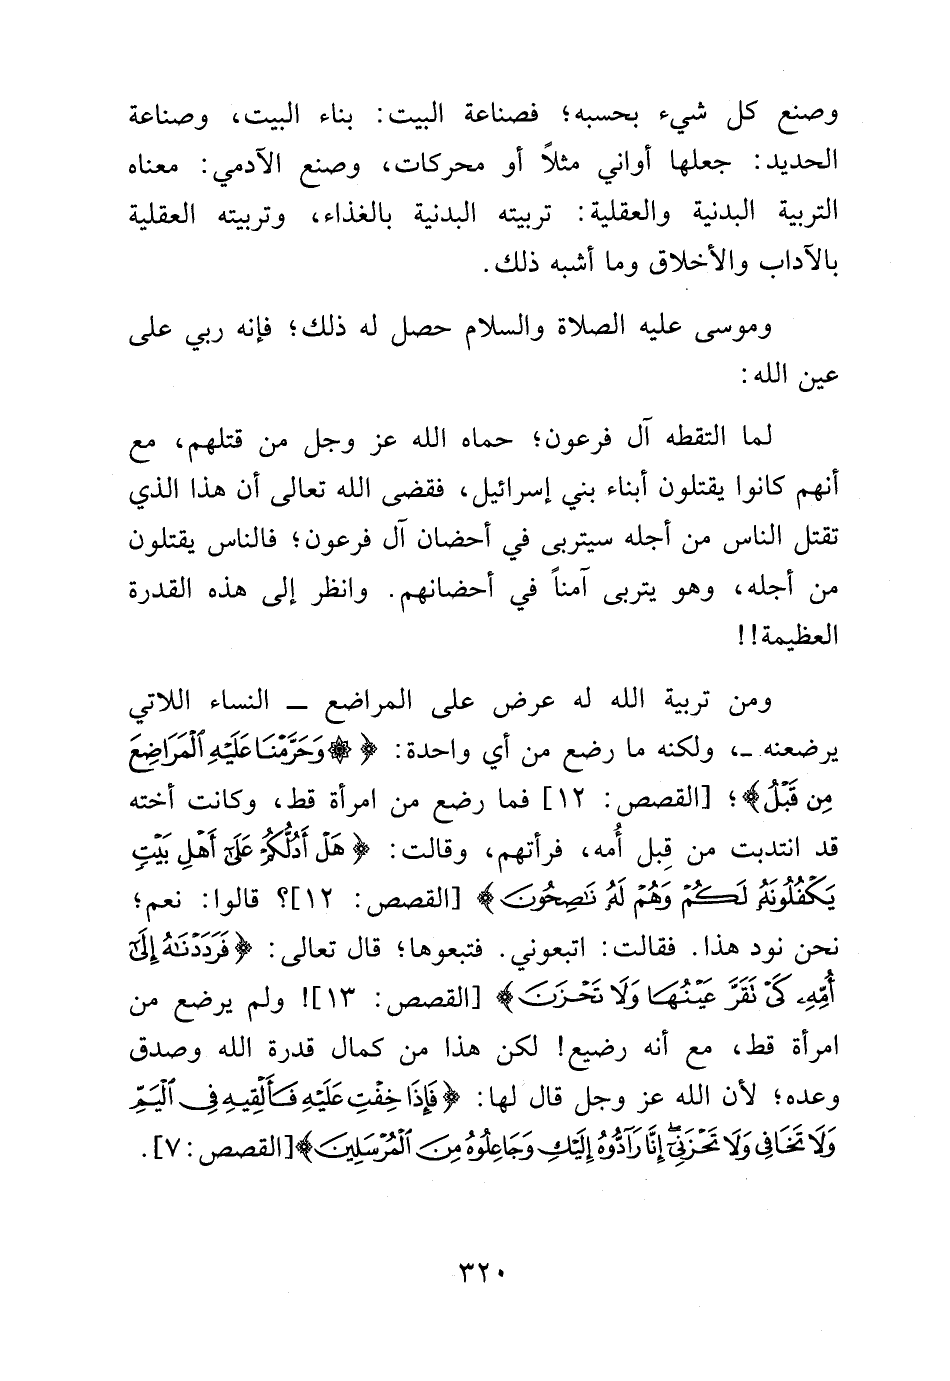 وصنع كل شيء بحسبه؛ فصناعة البيت: بناء البيت، وصناعة
الحديد: جعلها أواني مثلاً أو محركات، وصنع الآدمي: معناه
التربية البدنية والعقلية: تربيته البدنية بالغذاء، وتربيته العقلية
بالآداب والأخلاق وما أشبه ذلك.
وموسى عليه الصلاة والسلام حصل له ذلك؛ فإنه ربي على
عين الله:
لما التقطه آل فرعون؛ حماه الله عز وجل من قتلهم، مع
أنهم كانوا يقتلون أبناء بني إسرائيل، فقضى الله تعالى أن هذا الذي
تقتل الناس من أجله سيتربى في أحضان آل فرعون؛ فالناس يقتلون
من أجله، وهو يتربى آمناً في أحضانهم. وانظر إلى هذه القدرة
العظيمة!!
ومن تربية الله له عرض على المراضع ـ النساء اللاتي
يرضعنه ـ، ولكنه ما رضع من أي واحدة: ﴿ ۞ وَحَرَّمْنَا عَلَيْهِ ٱلْمَرَاضِعَ
مِن قَبْلُ ﴾؛ [القصص: ١٢] فما رضع من امرأة قط، وكانت أخته
قد انتدبت من قِبل أُمه، فرأتهم، وقالت: ﴿ هَلْ أَدُلُّكُمْ عَلَىٰٓ أَهْلِ بَيْتٍ
يَكْفُلُونَهُۥ لَكُمْ وَهُمْ لَهُۥ نَٰصِحُونَ ﴾ [القصص: ١٢]؟ قالوا: نعم؛
نحن نود هذا. فقالت: اتبعوني. فتبعوها؛ قال تعالى: ﴿ فَرَدَدْنَٰهُ إِلَىٰٓ
أُمِّهِۦ كَىْ تَقَرَّ عَيْنُهَا وَلَا تَحْزَنَ ﴾ [القصص: ١٣]! ولم يرضع من
امرأة قط، مع أنه رضيع! لكن هذا من كمال قدرة الله وصدق
وعده؛ لأن الله عز وجل قال لها: ﴿ فَإِذَا خِفْتِ عَلَيْهِ فَأَلْقِيهِ فِى ٱلْيَمِّ
وَلَا تَخَافِى وَلَا تَحْزَنِىٓ ۖ إِنَّا رَآدُّوهُ إِلَيْكِ وَجَاعِلُوهُ مِنَ ٱلْمُرْسَلِينَ ﴾ [القصص: ٧].
٣٢٠